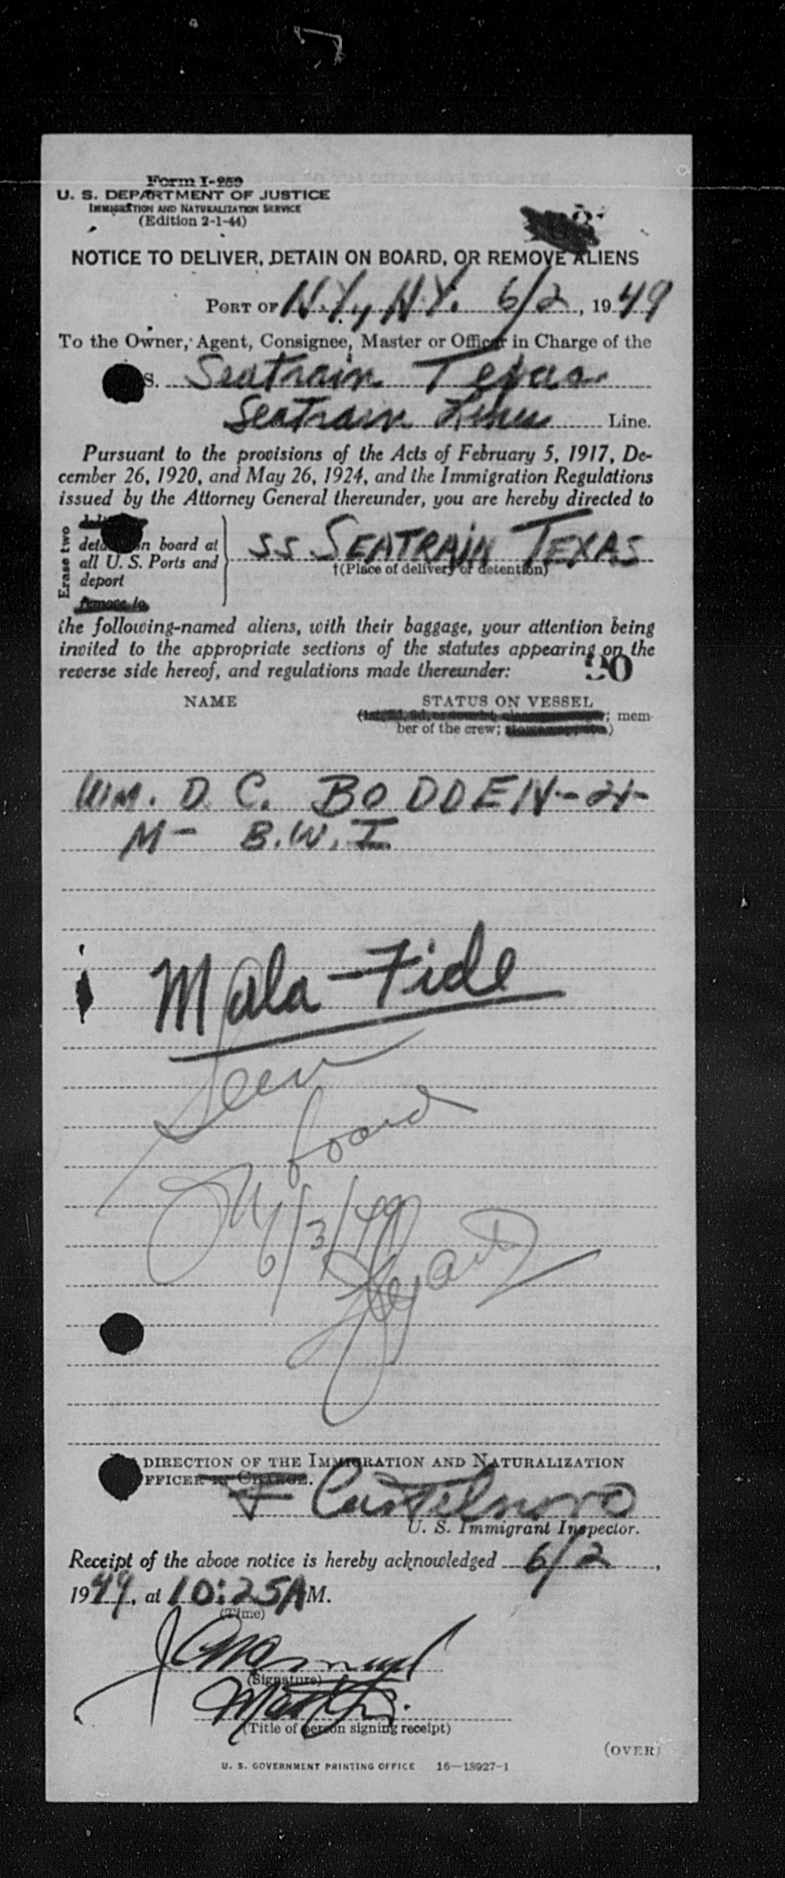 Form I-259
U. S. DEPARTMENT OF JUSTICE
IMMIGRATION AND NATURALIZATION SERVICE
(Edition 2-1-44)
NOTICE TO DELIVER, DETAIN ON BOARD, OR REMOVE ALIENS
PORT OF N.Y., N.Y. 6/2, 1949
To the Owner, Agent, Consignee, Master or Officer in Charge of the
S. Seatrain Texas
Seatrain Lines Line.
Pursuant to the provisions of the Acts of February 5, 1917, De-
cember 26, 1920, and May 26, 1924, and the Immigration Regulations
issued by the Attorney General thereunder, you are hereby directed to
Erase two
detain on board at
all U. S. Ports and
deport
remove to
SS SEATRAIN TEXAS
†(Place of delivery or detention)
the following-named aliens, with their baggage, your attention being
invited to the appropriate sections of the statutes appearing on the
reverse side hereof, and regulations made thereunder:
90
NAME STATUS ON VESSEL
; mem-
ber of the crew; )
WM. D. C. BODDEN - 21 -
M - B.W.I.
Mala-Fide
Seen
board
6/3/49
DIRECTION OF THE IMMIGRATION AND NATURALIZATION
OFFICER IN CHARGE.
U. S. Immigrant Inspector.
Receipt of the above notice is hereby acknowledged 6/2,
1949, at 10:25 AM.
(Time)
(Signature)
(Title of person signing receipt)
(OVER)
U. S. GOVERNMENT PRINTING OFFICE 16—18927-1